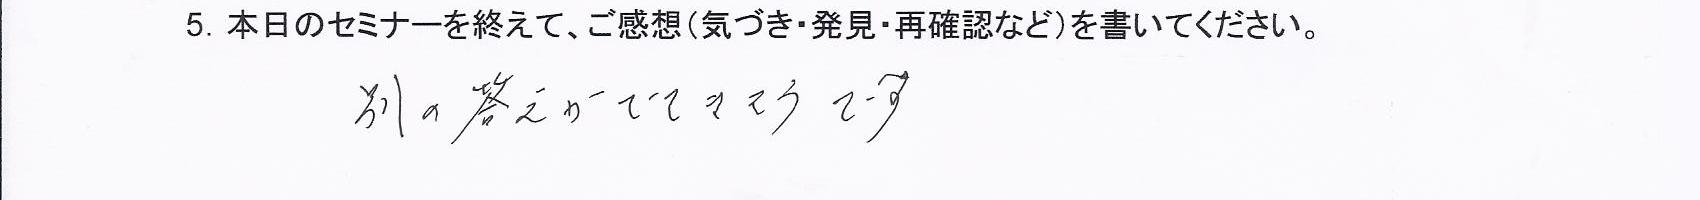 5. 本日のセミナーを終えて、ご感想(気づき・発見・再確認など)を書いてください。
別の答えがでてきそうです